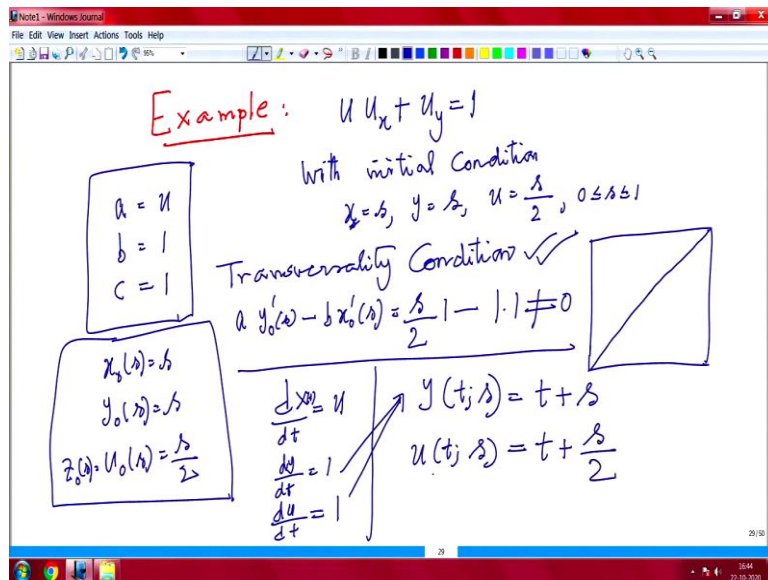 Note1 - Windows Journal
File Edit View Insert Actions Tools Help
95%
Example: u u_x + u_y = 1
with initial condition
x = s, y = s, u = s/2, 0 ≤ s ≤ 1
a = u
b = 1
c = 1
Transversality Condition ✓✓
a y_0'(s) - b x_0'(s) = s/2 1 - 1.1 ≠ 0
x_0(s) = s
y_0(s) = s
z_0(s) = u_0(s) = s/2
dx(t)/dt = u
dy/dt = 1
du/dt = 1
y(t; s) = t + s
u(t; s) = t + s/2
29/50
29
16:44
22-10-2020